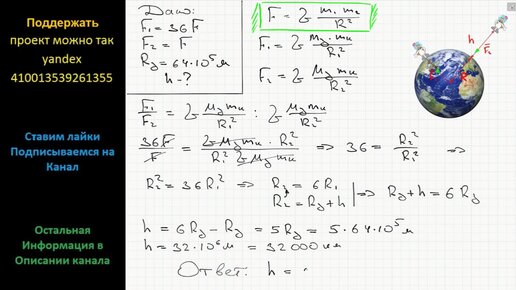 Поддержать
проект можно так
yandex
410013539261355
Ставим лайки
Подписываемся на
Канал
Остальная
Информация в
Описании канала
Дано:
F₁ = 36F
F₂ = F
Rз = 64·10⁵ м
h - ?
F = G m₁ m₂ / R²
F₁ = G Mз mк / R₁²
F₂ = G Mз mк / R₂²
F₁ / F₂ = G Mз mк / R₁² : G Mз mк / R₂²
36F / F = G Mз mк · R₂² / R₁² G Mз mк ⇒ 36 = R₂² / R₁² ⇒
R₂² = 36R₁² ⇒ R₂ = 6R₁
R₂ = Rз + h | ⇒ Rз + h = 6Rз
h = 6Rз - Rз = 5Rз = 5·64·10⁵ м
h = 32·10⁶ м = 32000 км
Ответ: h =
h
F₂